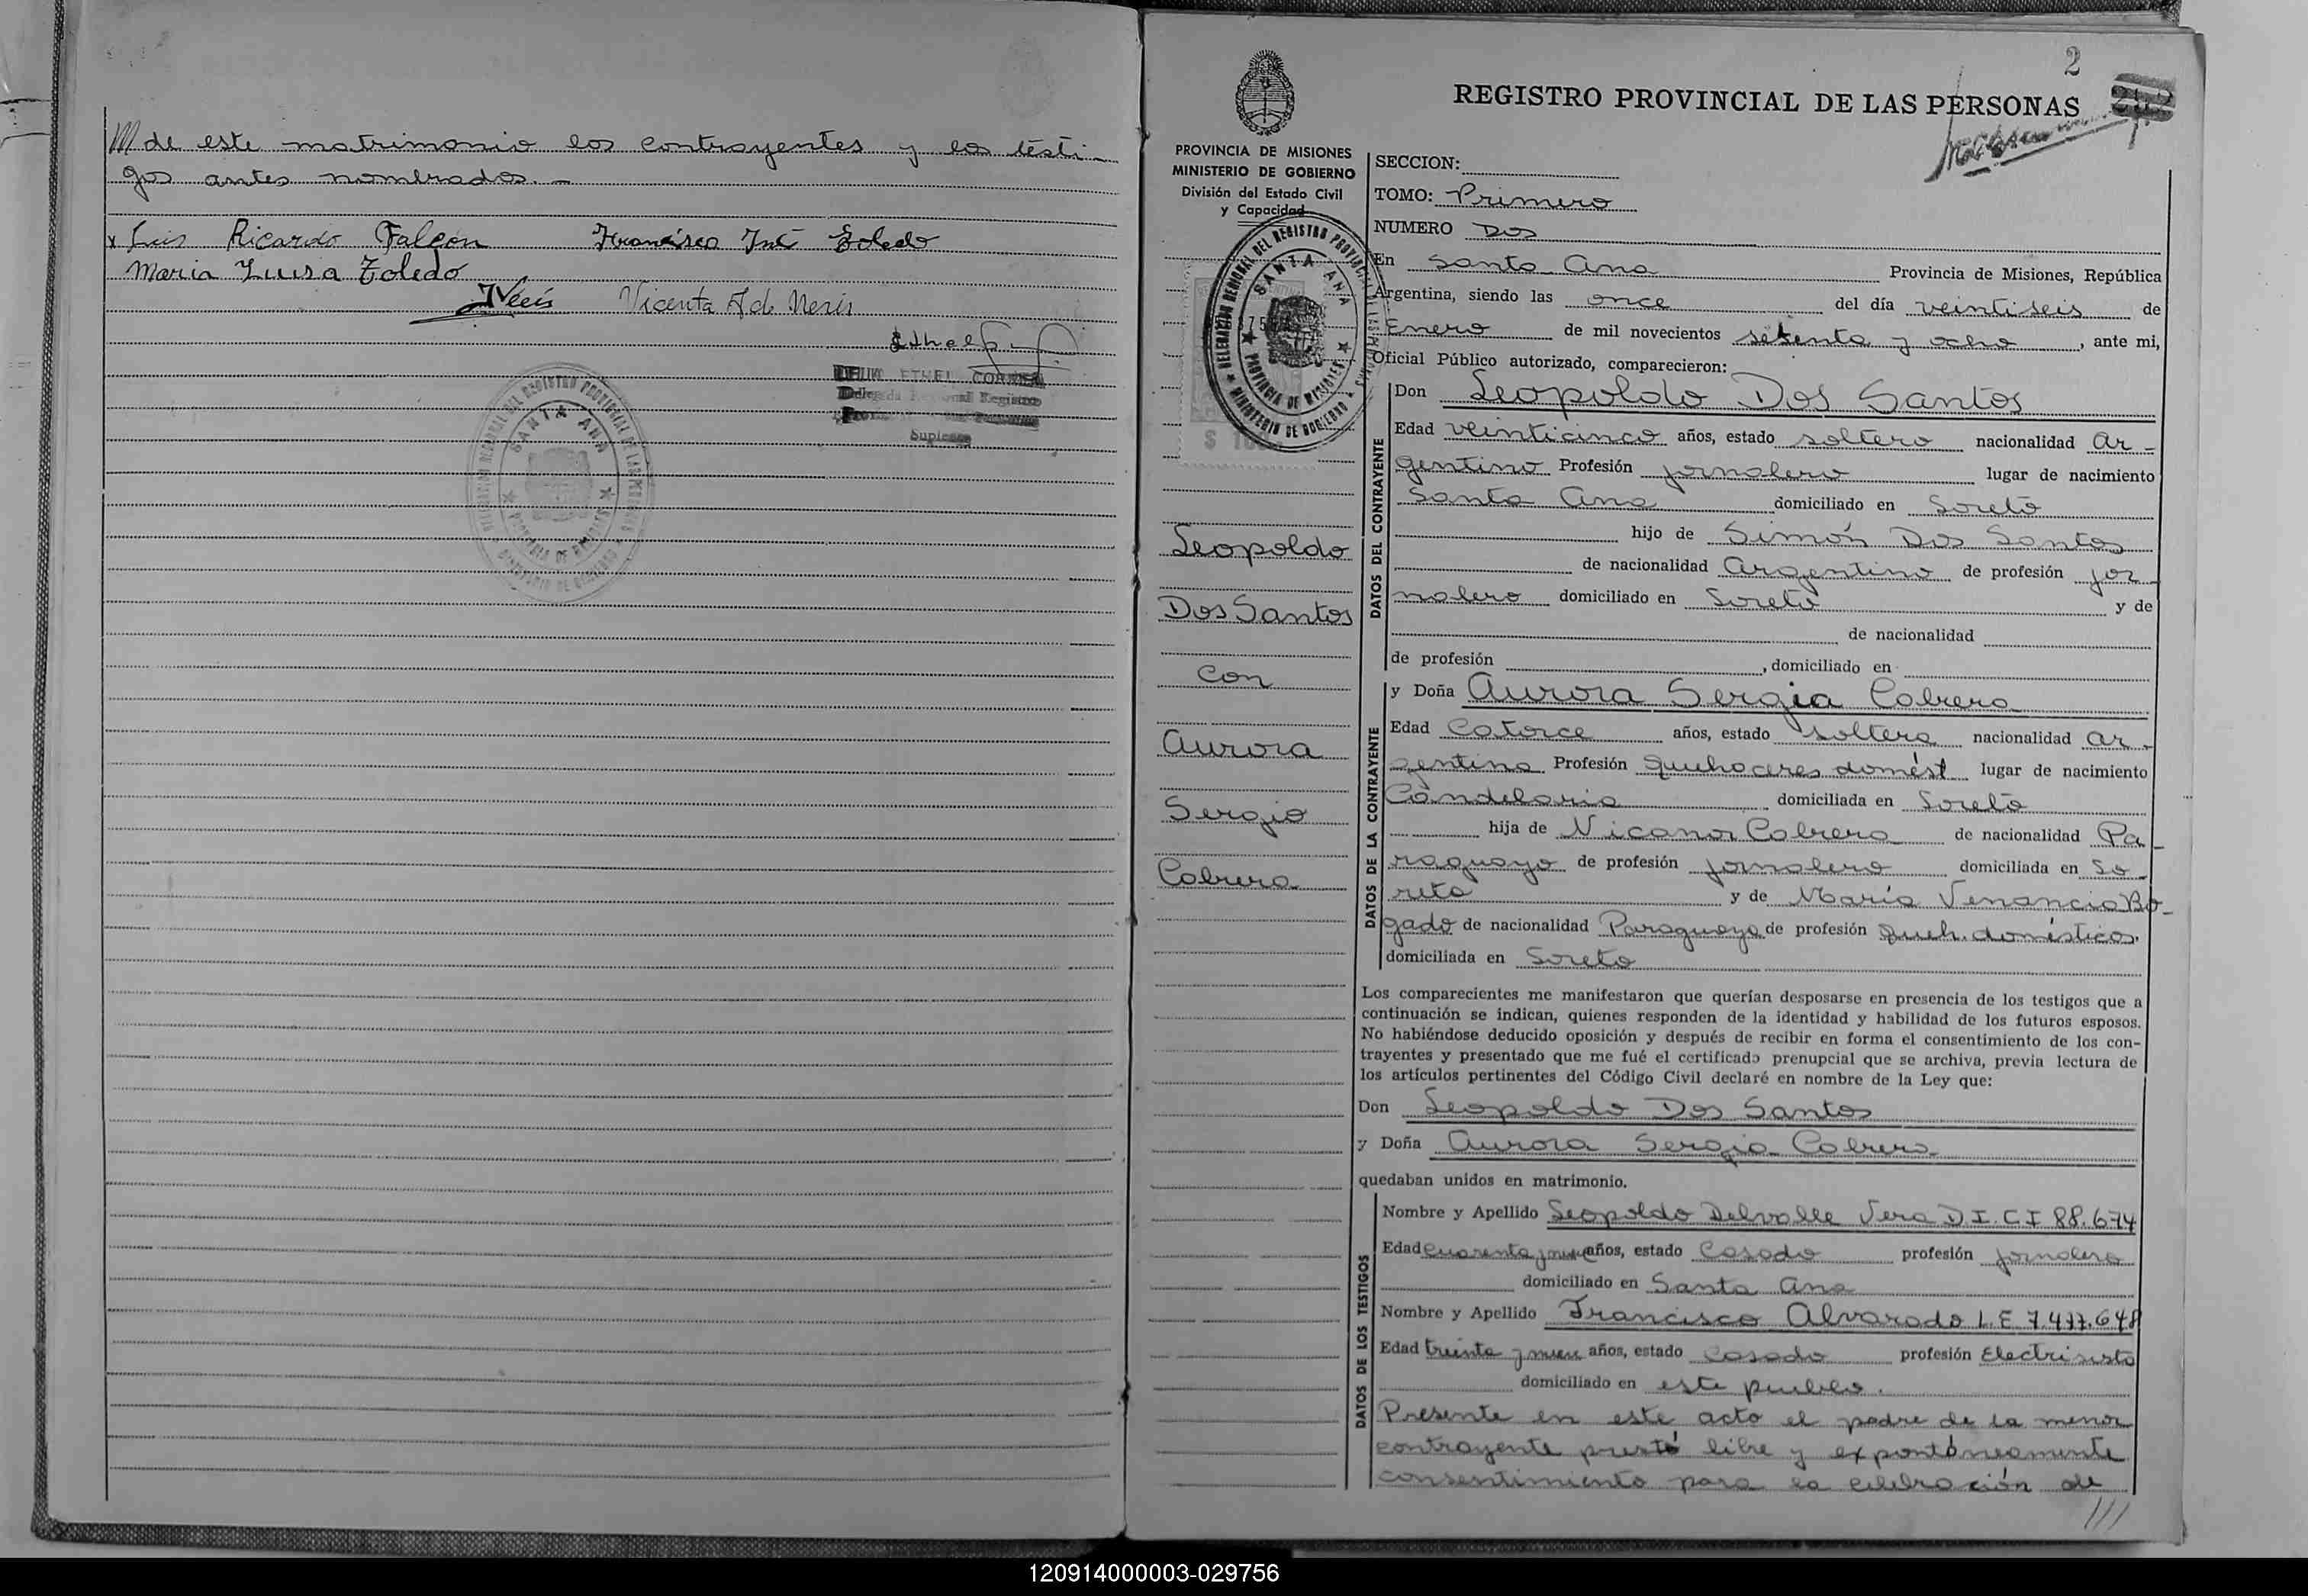 /// de este matrimonio los contrayentes y los testi-
gos antes nombrados. -
x Luis Ricardo Falcón Francisco Toledo
Maria Luisa Toledo
Neris Vicenta A de Neris
ETHEL CORREA
Delegada Regional Registro
Suplente
DELEGACION REGIONAL DEL REGISTRO PROVINCIAL DE LAS PERSONAS
SANTA ANA
PROVINCIA DE MISIONES
MINISTERIO DE GOBIERNO
2
REGISTRO PROVINCIAL DE LAS PERSONAS
PROVINCIA DE MISIONES
MINISTERIO DE GOBIERNO
División del Estado Civil
y Capacidad
DELEGACION REGIONAL DEL REGISTRO PROVINCIAL DE LAS PERSONAS
SANTA ANA
PROVINCIA DE MISIONES
MINISTERIO DE GOBIERNO
Leopoldo
Dos Santos
con
Aurora
Sergia
Cabrera
SECCION:
TOMO: Primero
NUMERO Dos
En Santa Ana Provincia de Misiones, República
Argentina, siendo las once del día veintiseis de
Enero de mil novecientos setenta y ocho, ante mi,
Oficial Público autorizado, comparecieron:
DATOS DEL CONTRAYENTE
Don Leopoldo Dos Santos
Edad veinticinco años, estado soltero nacionalidad Ar-
gentino Profesión jornalero lugar de nacimiento
Santa Ana domiciliado en Loreto
hijo de Simón Dos Santos
de nacionalidad Argentino de profesión jor-
nalero domiciliado en Loreto y de
de nacionalidad
de profesión , domiciliado en
DATOS DE LA CONTRAYENTE
y Doña Aurora Sergia Cabrera
Edad Catorce años, estado soltera nacionalidad Ar-
gentina Profesión Quehaceres domést lugar de nacimiento
Candelaria domiciliada en Loreto
hija de Nicanor Cabrera de nacionalidad Pa-
raguayo de profesión jornalero domiciliada en Lo-
reto y de María Venancia Bo-
gado de nacionalidad Paraguaya de profesión Queh. domésticos.
domiciliada en Loreto
Los comparecientes me manifestaron que querían desposarse en presencia de los testigos que a
continuación se indican, quienes responden de la identidad y habilidad de los futuros esposos.
No habiéndose deducido oposición y después de recibir en forma el consentimiento de los con-
trayentes y presentado que me fué el certificado prenupcial que se archiva, previa lectura de
los artículos pertinentes del Código Civil declaré en nombre de la Ley que:
Don Leopoldo Dos Santos
y Doña Aurora Sergia Cabrera
quedaban unidos en matrimonio.
DATOS DE LOS TESTIGOS
Nombre y Apellido Leopoldo Delvalle Vera D.I. C.I 88.674
Edad cuarenta y nueve años, estado Casado profesión jornalero
domiciliado en Santa Ana
Nombre y Apellido Francisco Alvarado L.E 7.477.648
Edad treinta y nueve años, estado Casado profesión Electrisista
domiciliado en este pueblo.
Presente en este acto el padre de la menor
contrayente prestó libre y expontáneamente
consentimiento para la celebración de
///
120914000003-029756